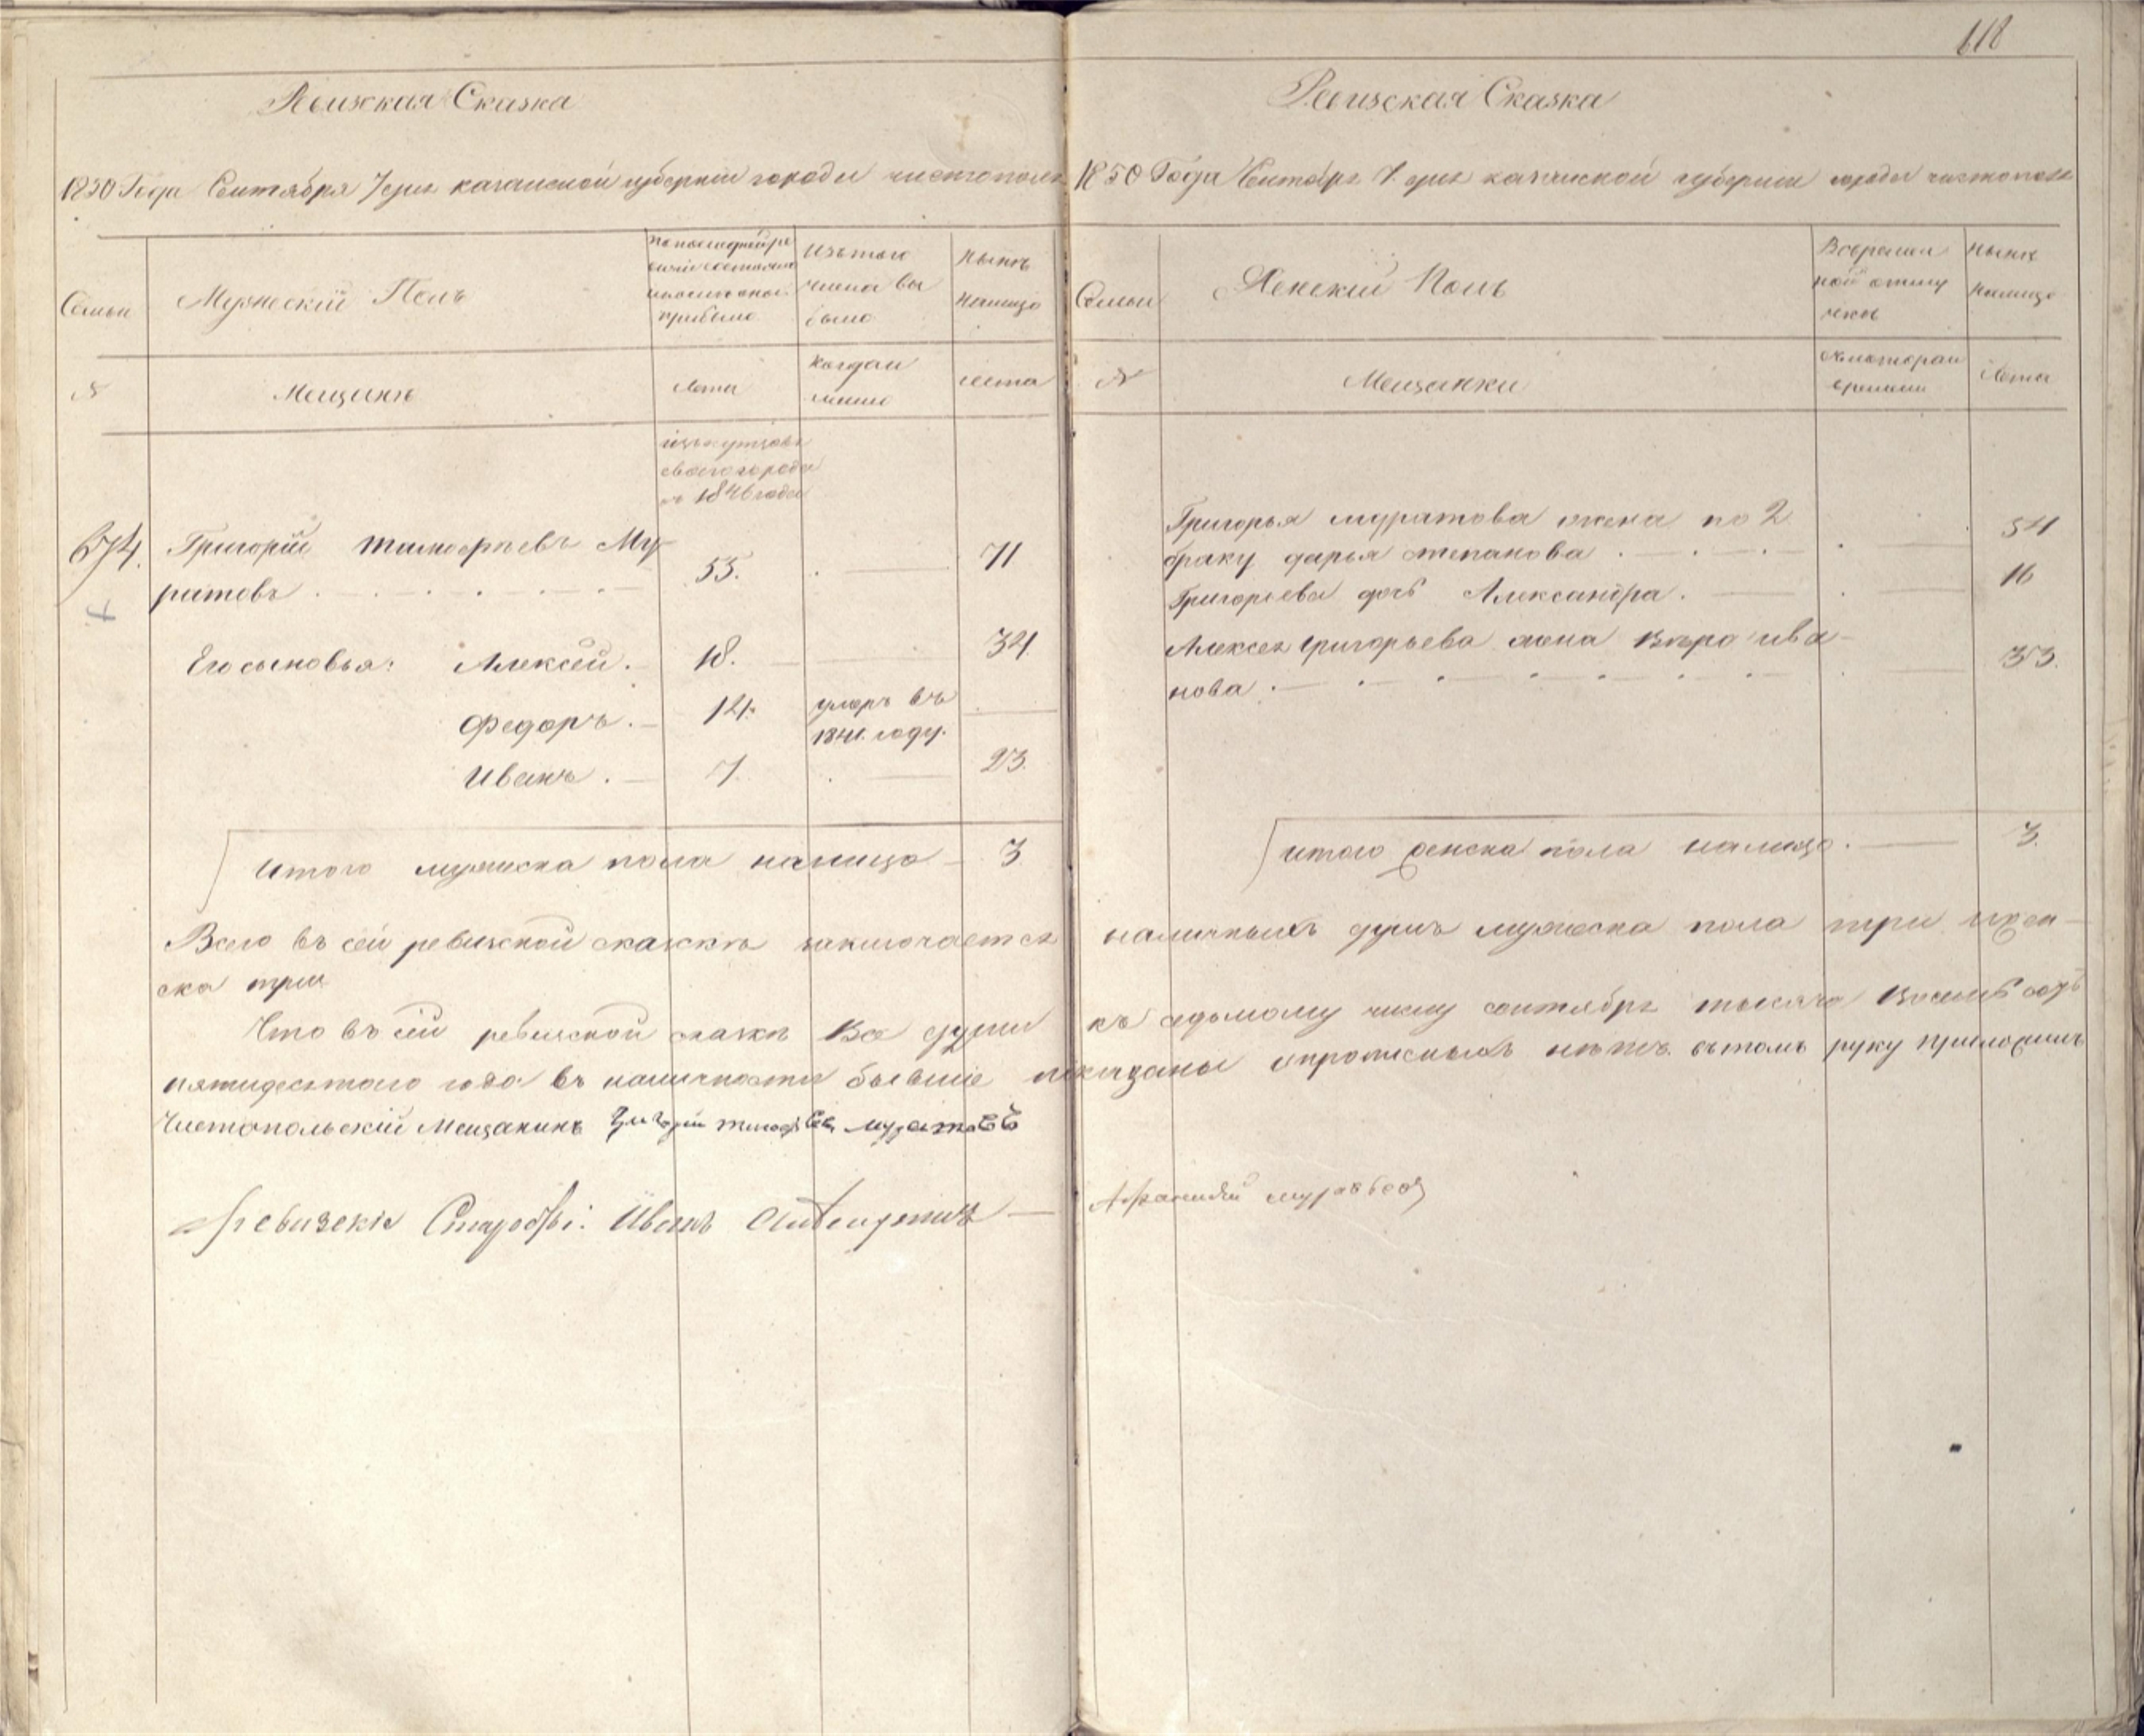 618
Ревизская Сказка
1850 Года Сентября 7 дня казанской губернии города чистополя
Семьи
Мужескій Полъ
По последней ре
визіи состояло
и после оной
прибыло
Изъ того
числа вы
было
Ныне
налицо
№
Мещане
Лета
Когда и
лета
изъ купцовъ
своего города
въ 1846 году
674.
Григорій Тимофеевъ Му
ратовъ
55.
71
Его сыновья: Алексей.
18.
34
Федоръ.
14.
умеръ въ
1841. году.
Иванъ.
7.
23.
Итого мужеска пола налицо
3
Ревизская Сказка
1850 Года Сентября 7 дня казанской губернии города чистополя
Семьи
Женскій Полъ
Во времен
ной отлу
чке
Ныне
налицо
№
Мещанки
С котораго
времени
Лета
Григорья муратова жена по 2
браку дарья степанова
54
Григорьева дочь Александра.
16
Алексея григорьева жена Вера ива
нова
33.
итого женска пола налицо.
3.
Всего въ сей ревизской сказке заключается наличныхъ душъ мужеска пола три и жен
ска три
Что въ сей ревизской сказке Все души къ седьмому числу сентября тысяча Восемь сотъ
пятидесятого года въ наличности бывшие показаны и прописныхъ нетъ. въ томъ руку приложилъ
Чистопольскій Мещанинъ Григорій тимофеевъ муратовъ
Иванъ